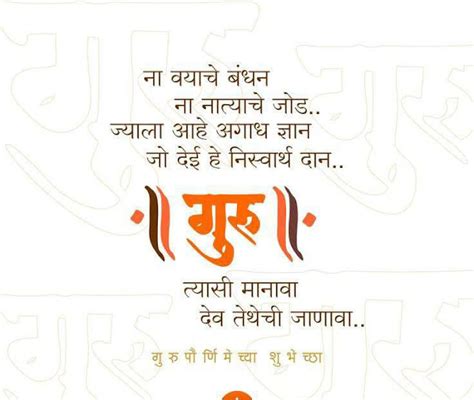 ना वयाचे बंधन
ना नात्याचे जोड..
ज्याला आहे अगाध ज्ञान
जो देई हे निस्वार्थ दान..
॥ गुरु ॥
त्यासी मानावा
देव तेथेची जाणावा..
गुरुपौर्णिमेच्या शुभेच्छा